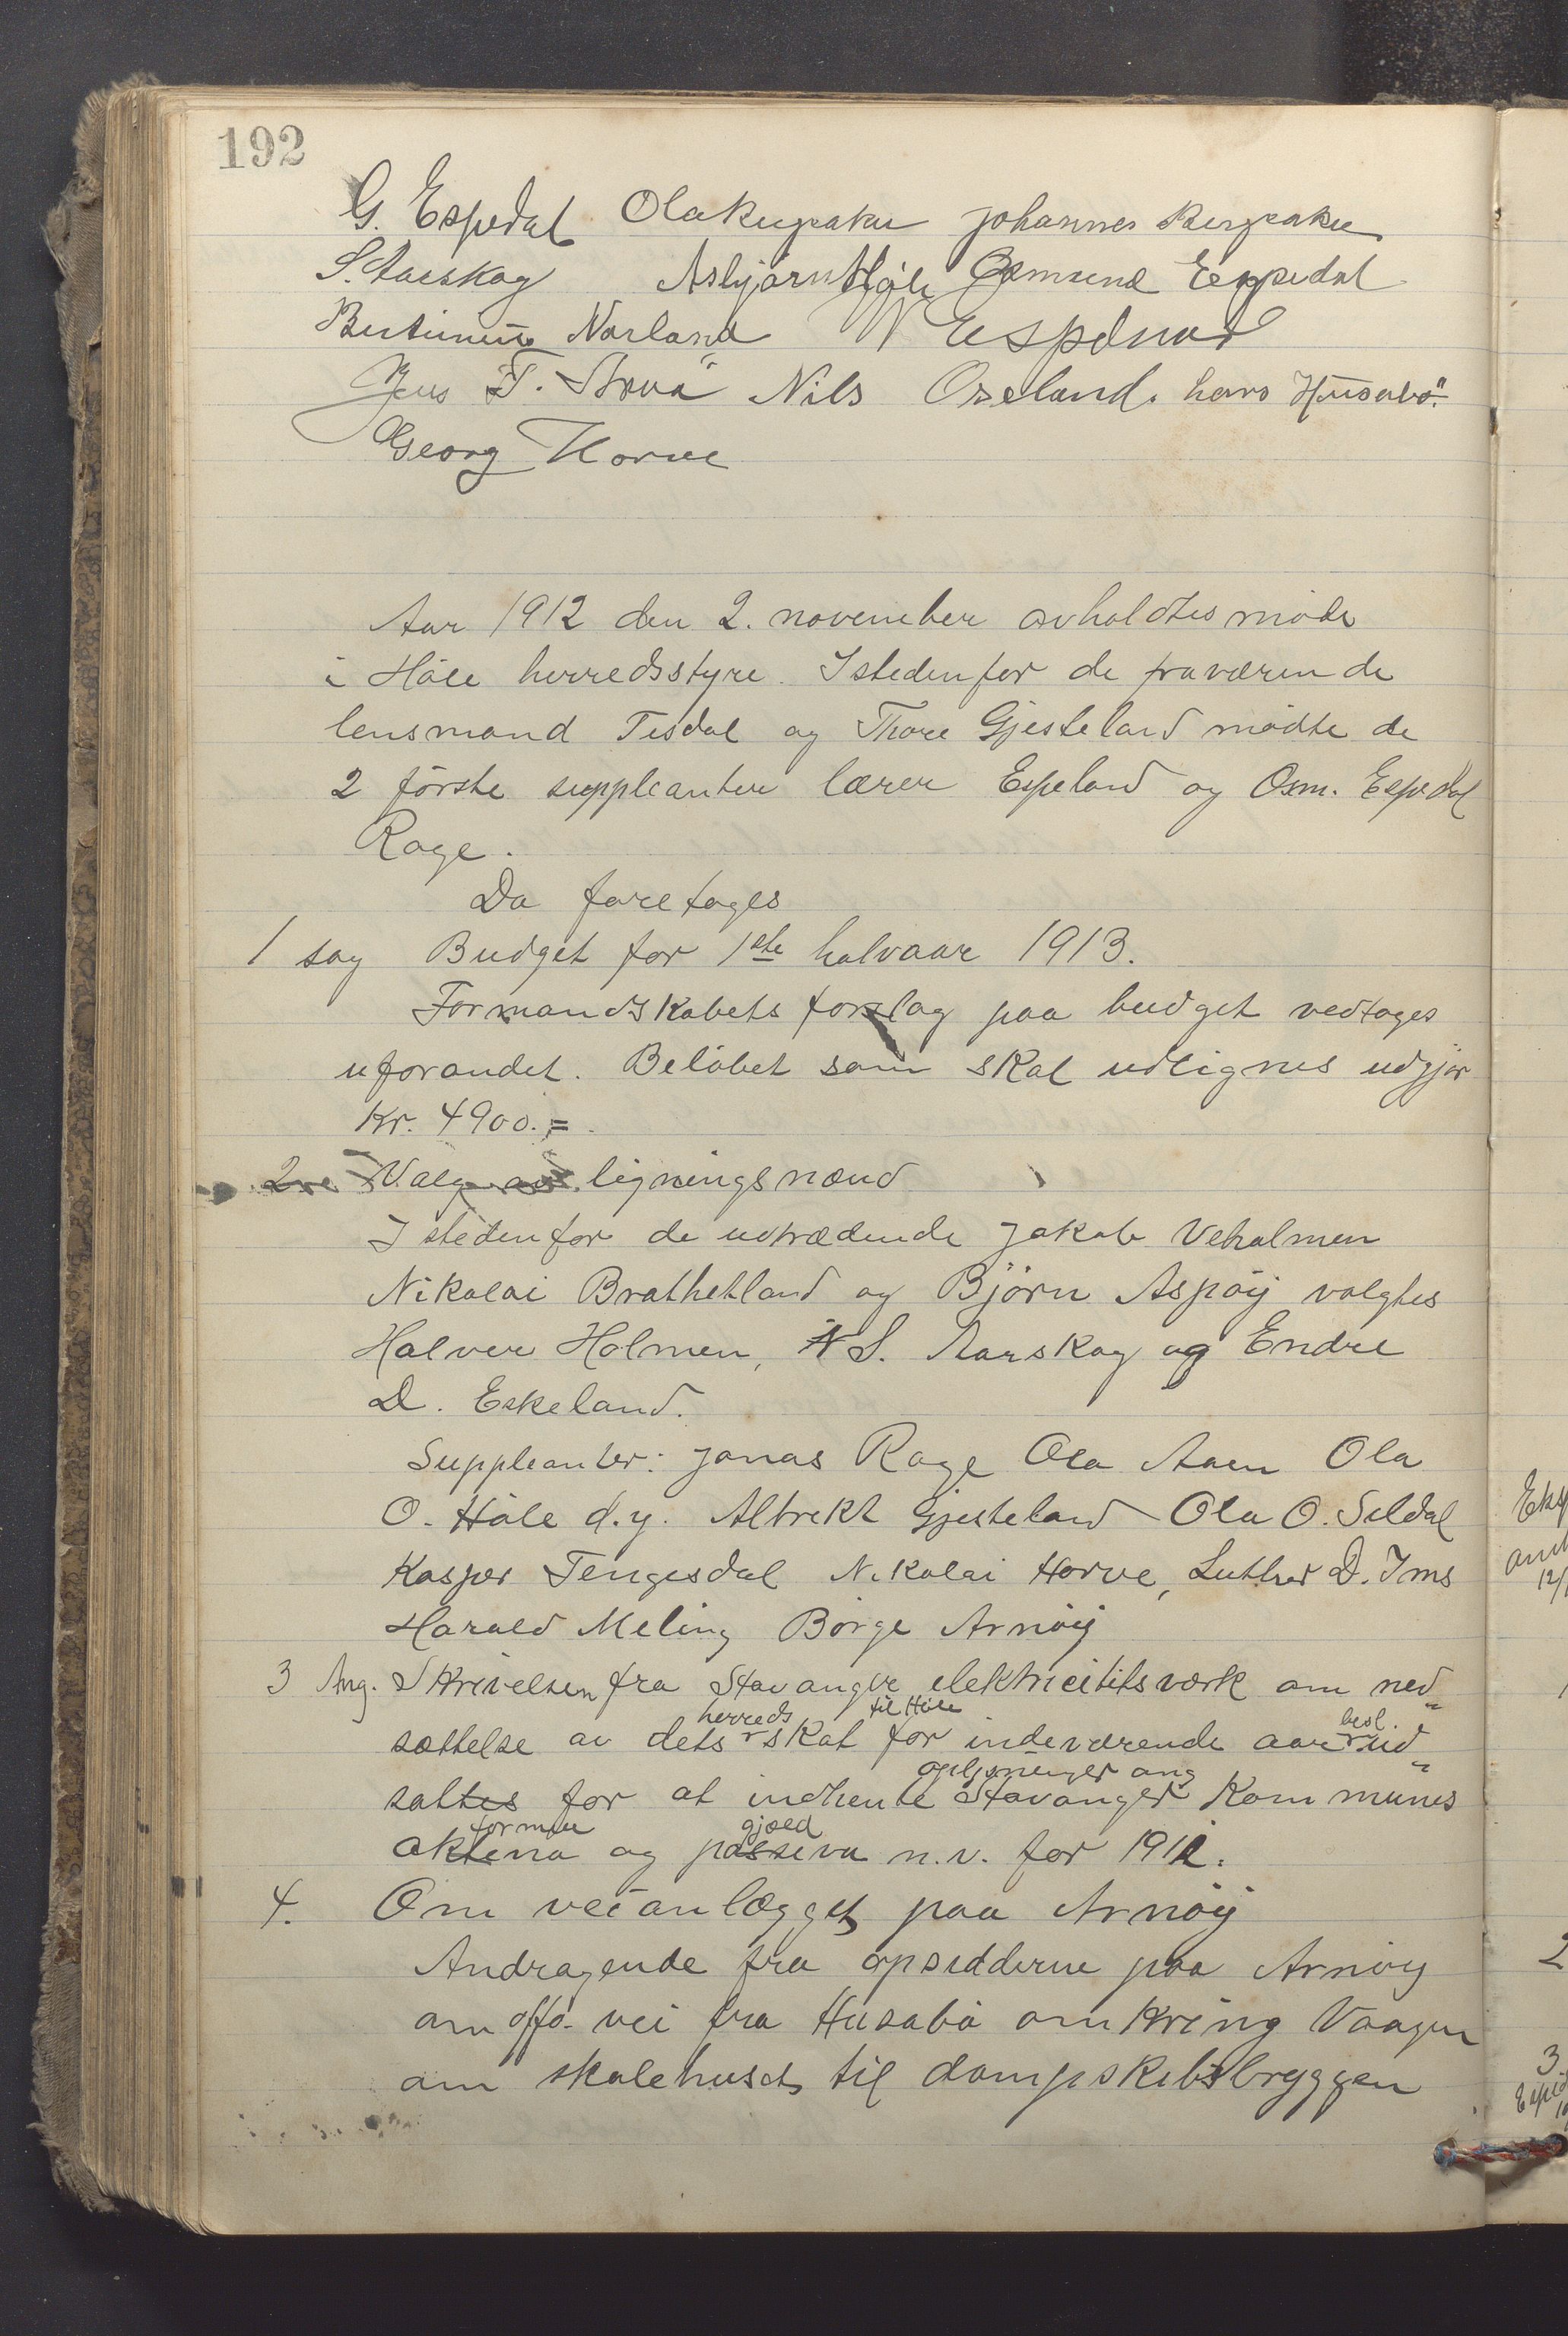 192
G. Espedal Ola Bergeaker Johannes Bergeaker
S. Aarskog Asbjørn Høle Osmund Espedal
Norland N Espeland
Jens T. Strvå Nils Oseland. hans Husabø.
Georg Horve
Aar 1912 den 2. november avholdtes møde
i Høle herredsstyre. Istedenfor de fraværende
lensmand Tisdal og Thore Gjesteland mødte de
2 første suppleanter lærer Espeland og Osm. Espedal
Rage.
Da foretoges
1 sag Budget for 1ste halvaar 1913.
Formandskabets forslag paa budget vedtoges
uforandet. Beløbet som skal udlignes udgjør
Kr. 4900.=
2re Valg av ligningsnævnd
Istedenfor de udtrædende Jakob Veholmen
Nikolai Brathetland og Bjørn Aspøy valgtes
Halvor Holmen, S. Aarskog og Endre
D. Eskeland.
Suppleanter: Jonas Rage Ola Aaen Ola
O. Høle d.y. Albrekt Gjesteland Ola O. Seldal
Kasper Tengesdal Nikolai Horve, Luther D. Ims
Harald Meling Børge Arnøy
3 Ang. Skrivelsen fra Stavanger elektricitetsværk om ned-
herreds til Høle besl.
sættelse av dets skat for indeværende aar ud-
oplysninger ang
sattes for at indhente Stavanger Kommunes
formue gjæld
aktiva og passiva n.v. for 1912.
4. Om veianlægget paa Arnøy
Andragende fra opsidderne paa Arnøy
om off. vei fra Husabø omkring Vaagen
om skolehuset til dampskibsbryggen
2
3